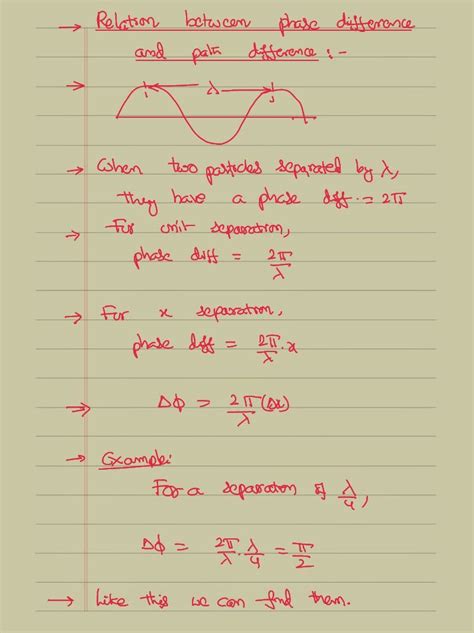 → Relation between phase difference
and path difference :-
→ λ
→ When two particles separated by λ,
they have a phase diff. = 2π
→ For unit separation,
phase diff = 2π/λ
→ For x separation,
phase diff = 2π/λ . x
⇒ Δϕ = 2π/λ (Δx)
→ Example:
For a separation of λ/4,
Δϕ = 2π/λ . λ/4 = π/2
→ Like this we can find them.